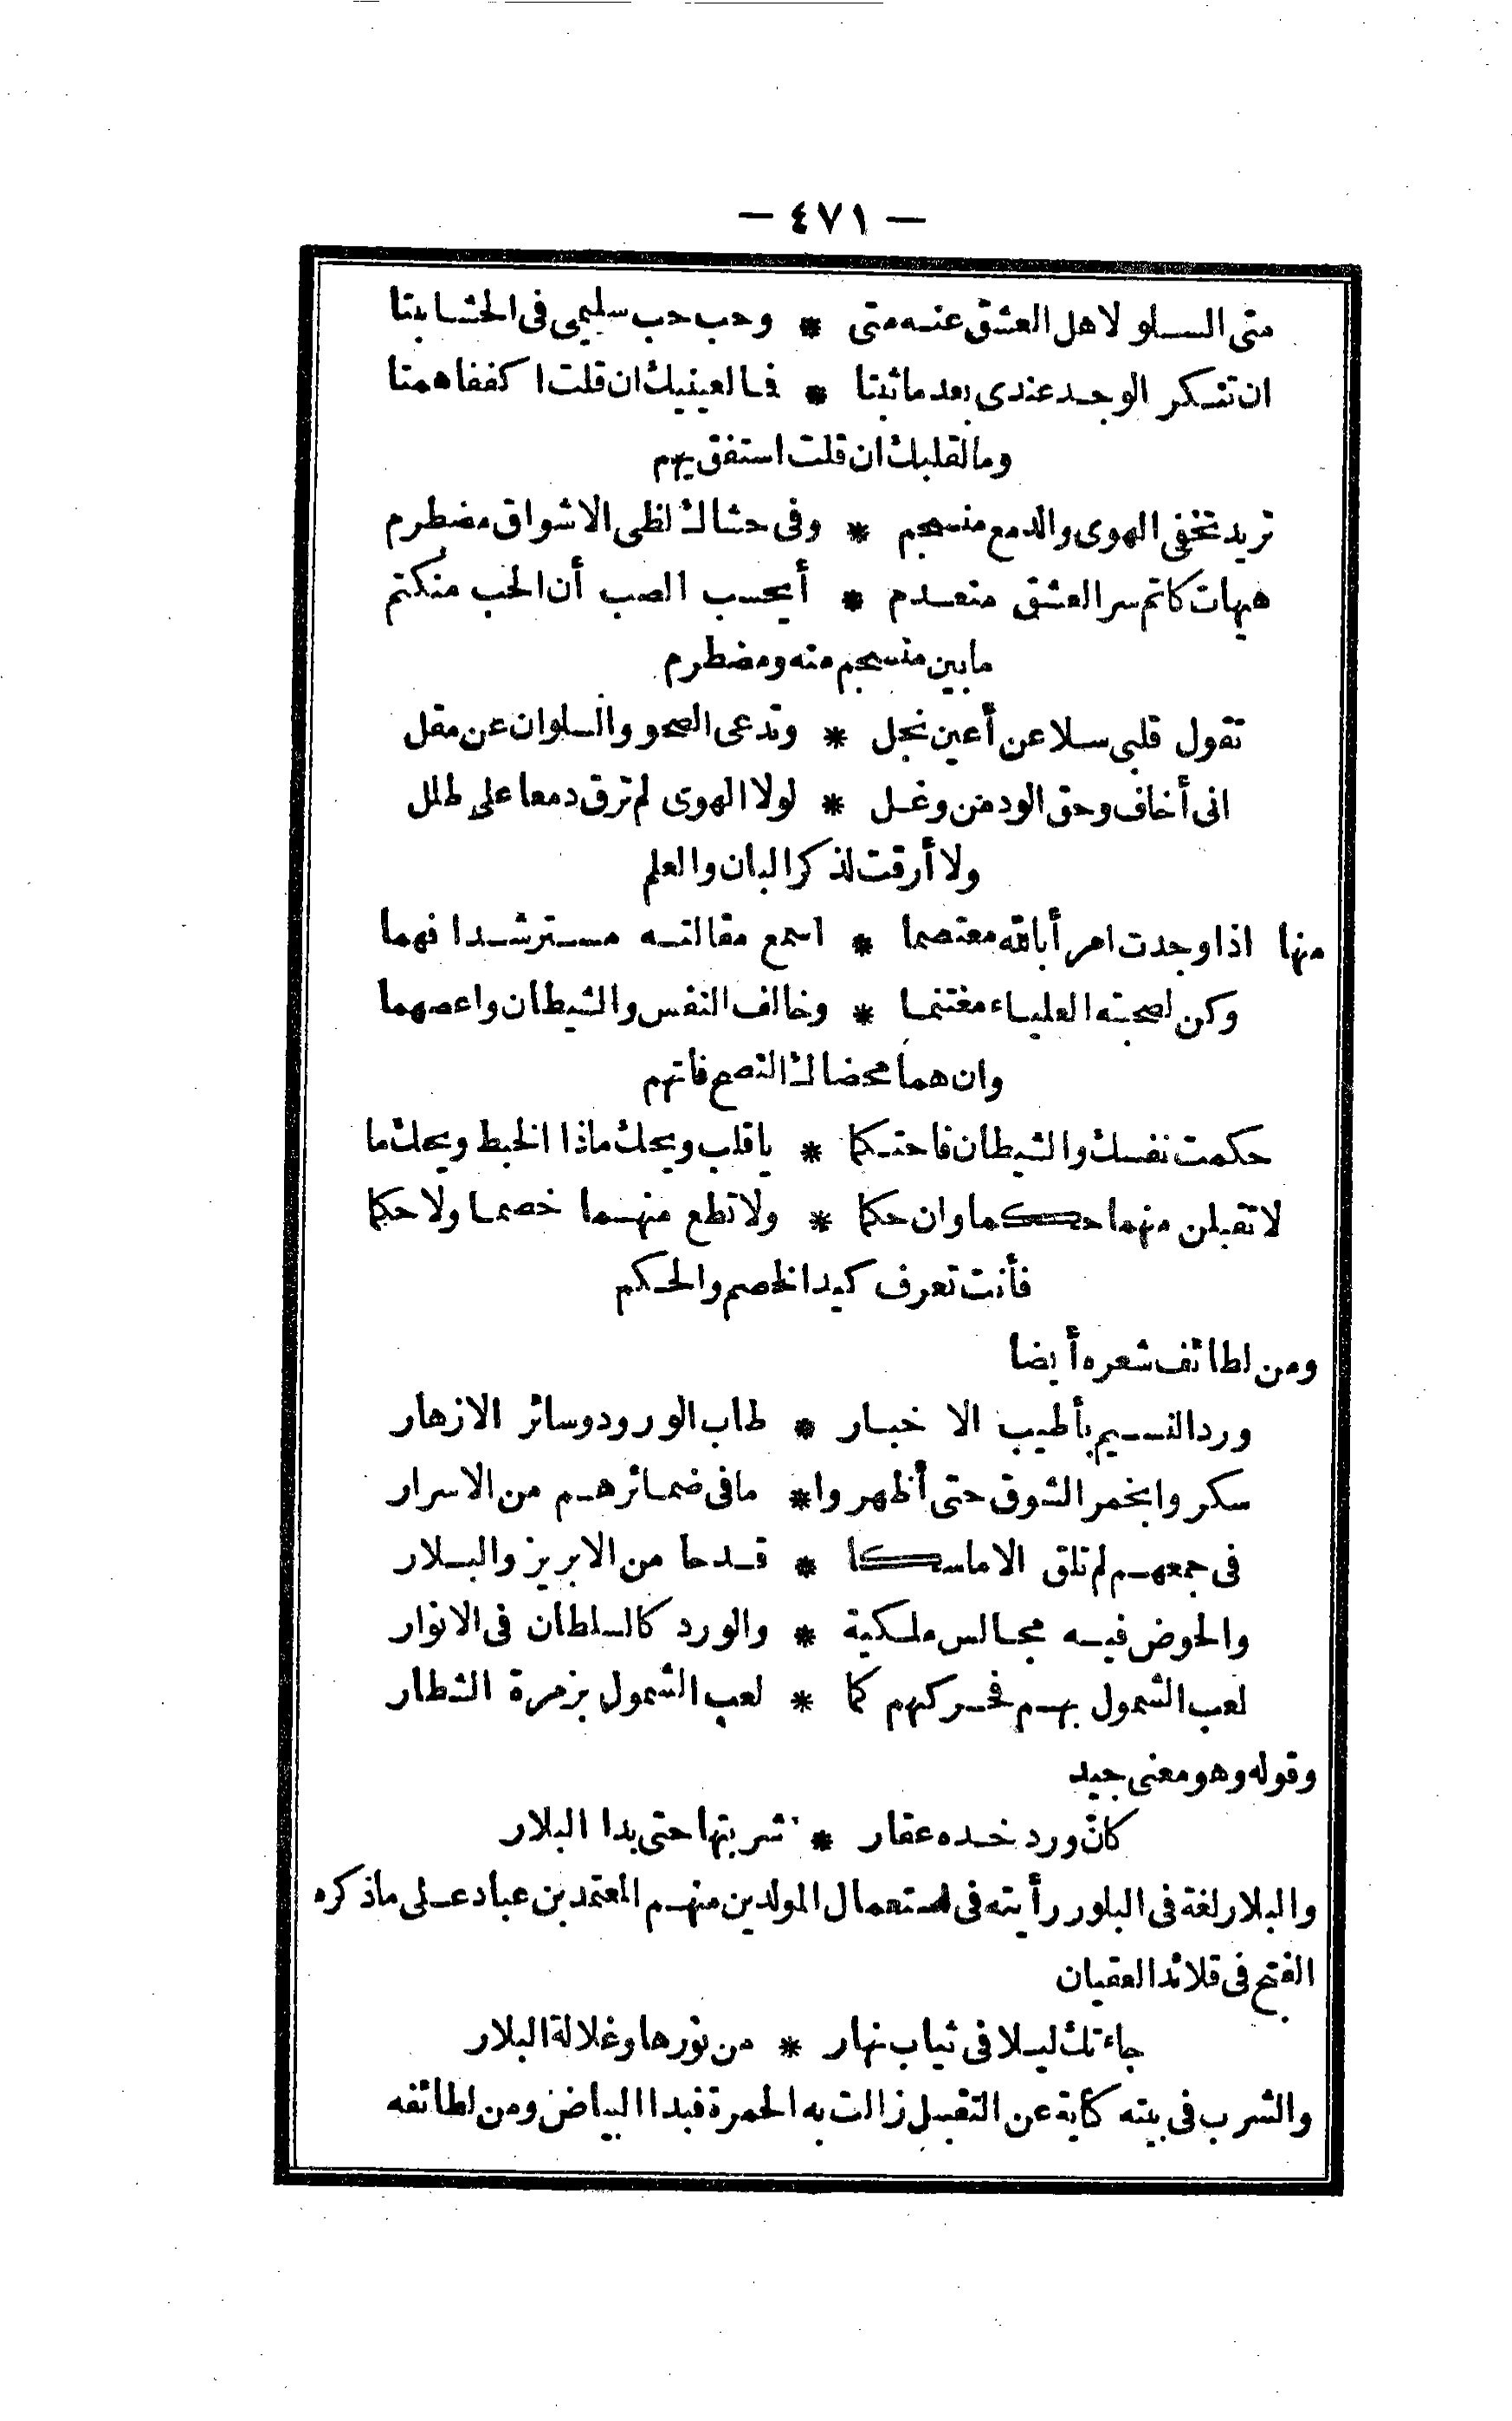 — ٤٧١ —
متى السلو لاهل العشق عنه متى * وحب حب سليمى فى الحشا بتا
ان تنكر الوجد عندى بعد ما ثبتا * فما لعينيك ان قلت ا كففا همتا
وما لقلبك ان قلت استفق يهم
تريد تخفى الهوى والدمع منسجم * وفى حشاك لظى الاشواق مضطرم
هيهات كاتم سر العشق منعدم * أيحسب الصب أن الحب منكتم
ما بين منسجم منه ومضطرم
تقول قلبى سلا عن أعين نجل * وتدعى الصحو والسلوان عن مقل
انى أخاف وحق الود من وغل * لولا الهوى لم ترق دمعا على طلل
ولا أرقت لذكر البان والعلم
منها اذا وجدت امرأ بالله معتصما * اسمع مقالته مسترشدا فهما
وكن لصحبته العلياء مغتنما * وخالف النفس والشيطان واعصهما
وان هما محضاك النصح فاتهم
حكمت نفسك والشيطان فاحتكما * يا قلب ويحك ماذا الخبط ويحك ما
لا تقبلن منهما حكما وان حكما * ولا تطع منهما خصما ولا حكما
فأنت تعرف كيد الخصم والحكم
ومن لطائف شعره أيضا
ورد النسيم بأطيب الا خبار * طاب الورود وسائر الازهار
سكروا بخمر الشوق حتى أظهروا * ما فى ضمائرهم من الاسرار
فى جمعهم لم تلق الا ماسكا * قدحا من الابريز والبلار
والحوض فيه مجالس ملكية * والورد كالسلطان فى الانوار
لعب الشمول بهم فحركهم كما * لعب الشمول بزمرة الشطار
وقوله وهو معنى جيد
كانّ ورد خده عقار * شربتها حتى بدا البلار
والبلار لغة فى البلور رأيته فى استعمال المولدين منهم المعتمد بن عباد على ما ذكره
الفتح فى قلائد العقيان
جاءتك ليلا فى ثياب نهار * من نورها وغلالة البلار
والشرب فى بيته كناية عن التقبيل زالت به الحمرة فبدا البياض ومن لطائفه